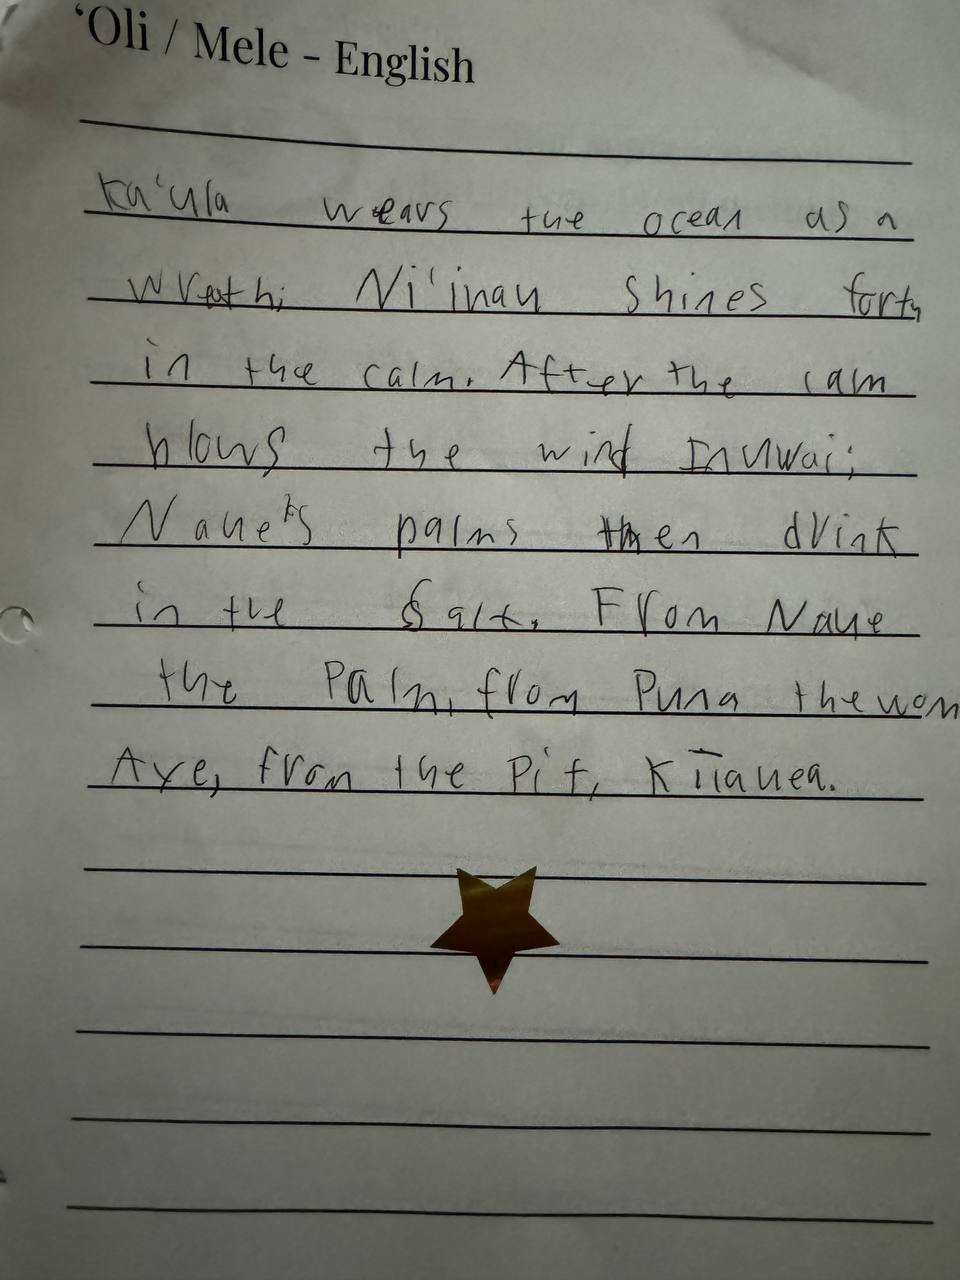 ʻOli / Mele - English
Ka'ula wears the ocean as a
wreath; Ni'ihau shines forth
in the calm. After the calm
blows the wind Inuwai;
Naue's palms then drink
in the salt. From Naue
the Palm, from Puna the wom
Aye, from the Pit, Kīlauea.